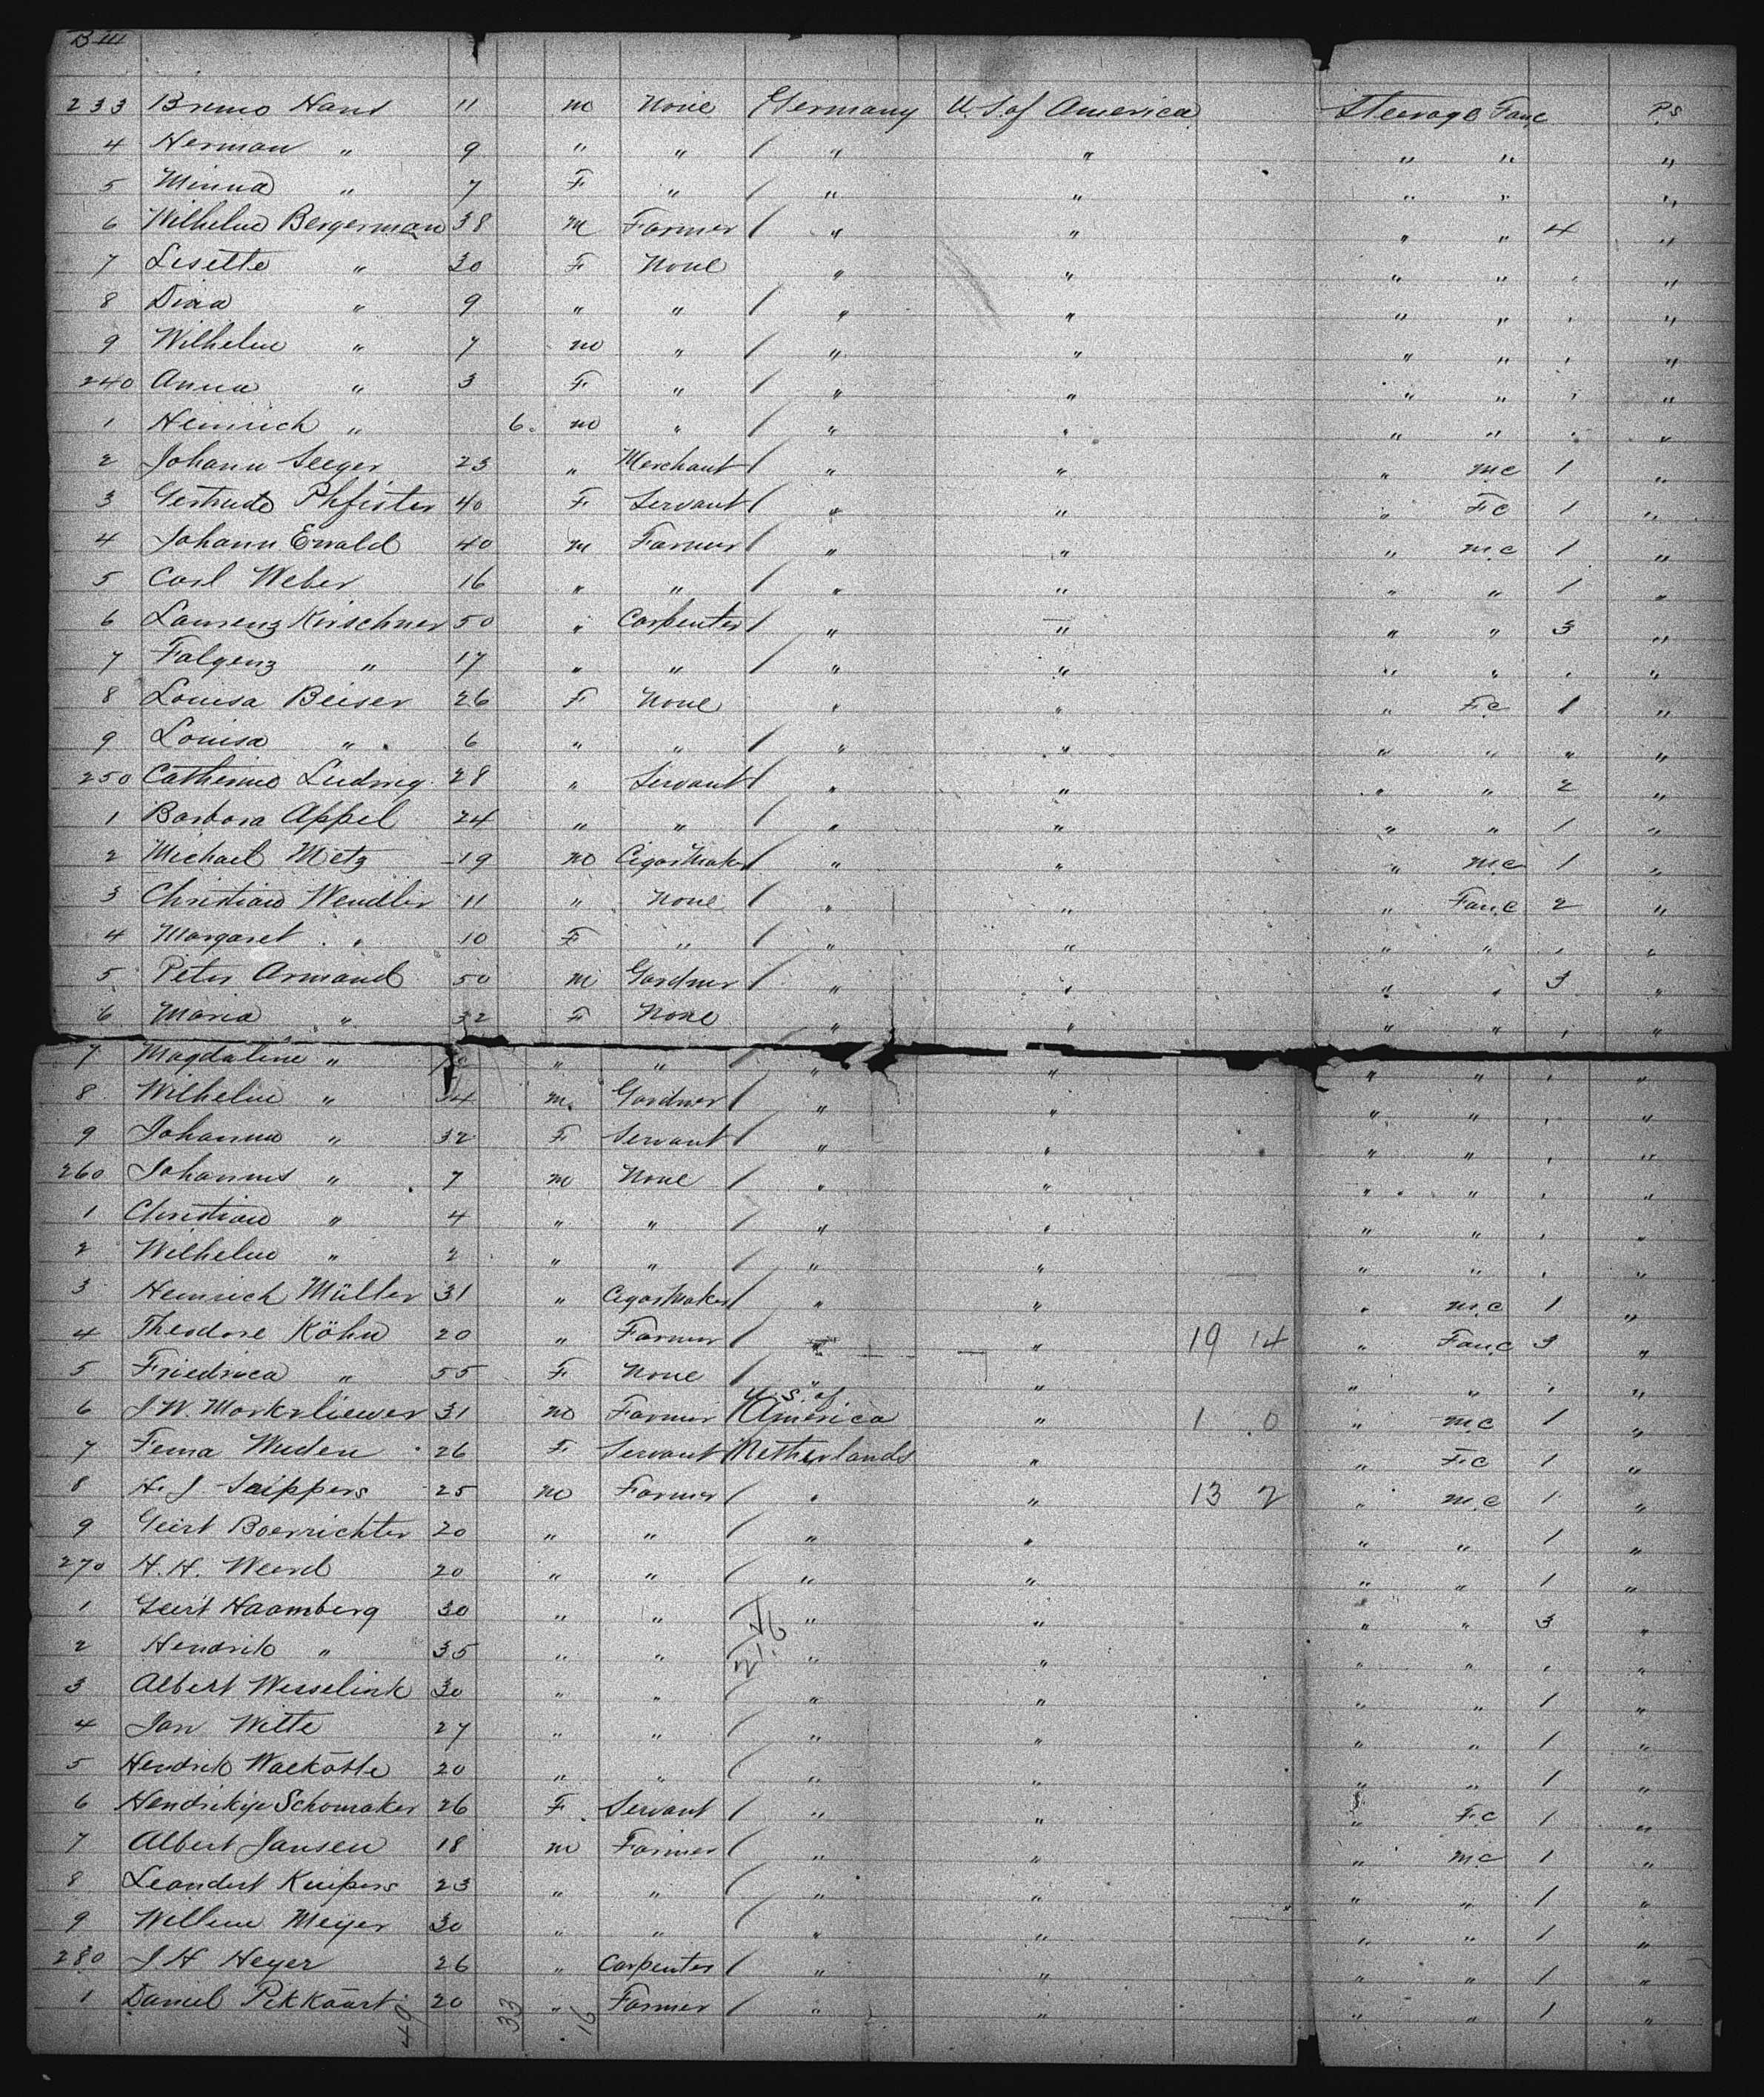 233 Bruno Hans 11 m None Germany U.S. of America Steerage Fam.C P.S
4 Herman " 9 " " / " " " " "
5 Minna " 7 F " / " " " " "
6 Wilhelm Bergerman 38 m Farmer / " " " " 4 "
7 Lisette " 30 F None " " " " " "
8 Dina " 9 " " / " " " " " "
9 Wilhelm " 7 m " / " " " " " "
240 Anna " 3 F " / " " " " " "
1 Heinrich " 6. m " / " " " " " "
2 Johann Seeger 23 " Merchant / " " " m.c 1 "
3 Gertrude Phfister 40 F Servant / " " " F.c 1 "
4 Johann Ewald 40 m Farmer / " " " m.c 1 "
5 Carl Weber 16 " " / " " " " 1 "
6 Laurenz Kirschner 50 " Carpenter / " " " " 3 "
7 Falgenz " 17 " " / " " " " " "
8 Louisa Beiser 26 F None " " " F.c 1 "
9 Louisa " 6 " " / " " " " " "
250 Catherine Ludwig 28 " Servant / " " " " 2 "
1 Barbara Appel 24 " " / " " " " 1 "
2 Michael Metz 19 m Cigar Maker / " " " m.c 1 "
3 Christian Wendler 11 " None / " " " Fam.C 2 "
4 Margaret " 10 F " / " " " " " "
5 Peter Armand 50 m Gardner / " " " " 3 "
6 Maria " 32 F None " " " " " "
7 Magdaline " " " / " " " " " "
8 Wilhelm " 34 m. Gardner / " " " " " "
9 Johanna " 32 F Servant / " " " " " "
260 Johannes " 7 m None / " " " " " "
1 Christian " 4 " " / " " " " " "
2 Wilhelm " 2 " " / " " " " " "
3 Heinrich Müller 31 " Cigar Maker / " " " m.c 1 "
4 Theodore Köhn 20 " Farmer / " " 19 14 " Fam.C 3 "
5 Friedrica " 55 F None / " " " " " "
6 J.W. 31 m Farmer / U.S. of America " 1 0 " m.c 1 "
7 Fenna Wuden 26 F Servant / Netherlands " " F.c 1 "
8 H. J 25 m Farmer / " " 13 2 " m.c 1 "
9 Geert Boerrichter 20 " " / " " " " 1 "
270 H. H. Weerd 20 " " / " " " " 1 "
1 Geert Haamberg 30 " " / " " " " 3 "
2 Hendrik " 35 " " / " " " " " "
3 Albert Wesselink 30 " " / " " " " 1 "
4 Jan Witte 27 " " / " " " " 1 "
5 Hendrik 20 " " / " " " " 1 "
6 Hendrikje Schomaker 26 F Servant / " " " F.c 1 "
7 Albert Jansen 18 m Farmer / " " " m.c 1 "
8 Leendert Kuipers 23 " " / " " " " 1 "
9 Willem Meijer 30 " " / " " " " 1 "
280 J H Heyer 26 " Carpenter / " " " " 1 "
1 Daniel Pikkaart 20 " Farmer / " " " " 1 "
49 33 16